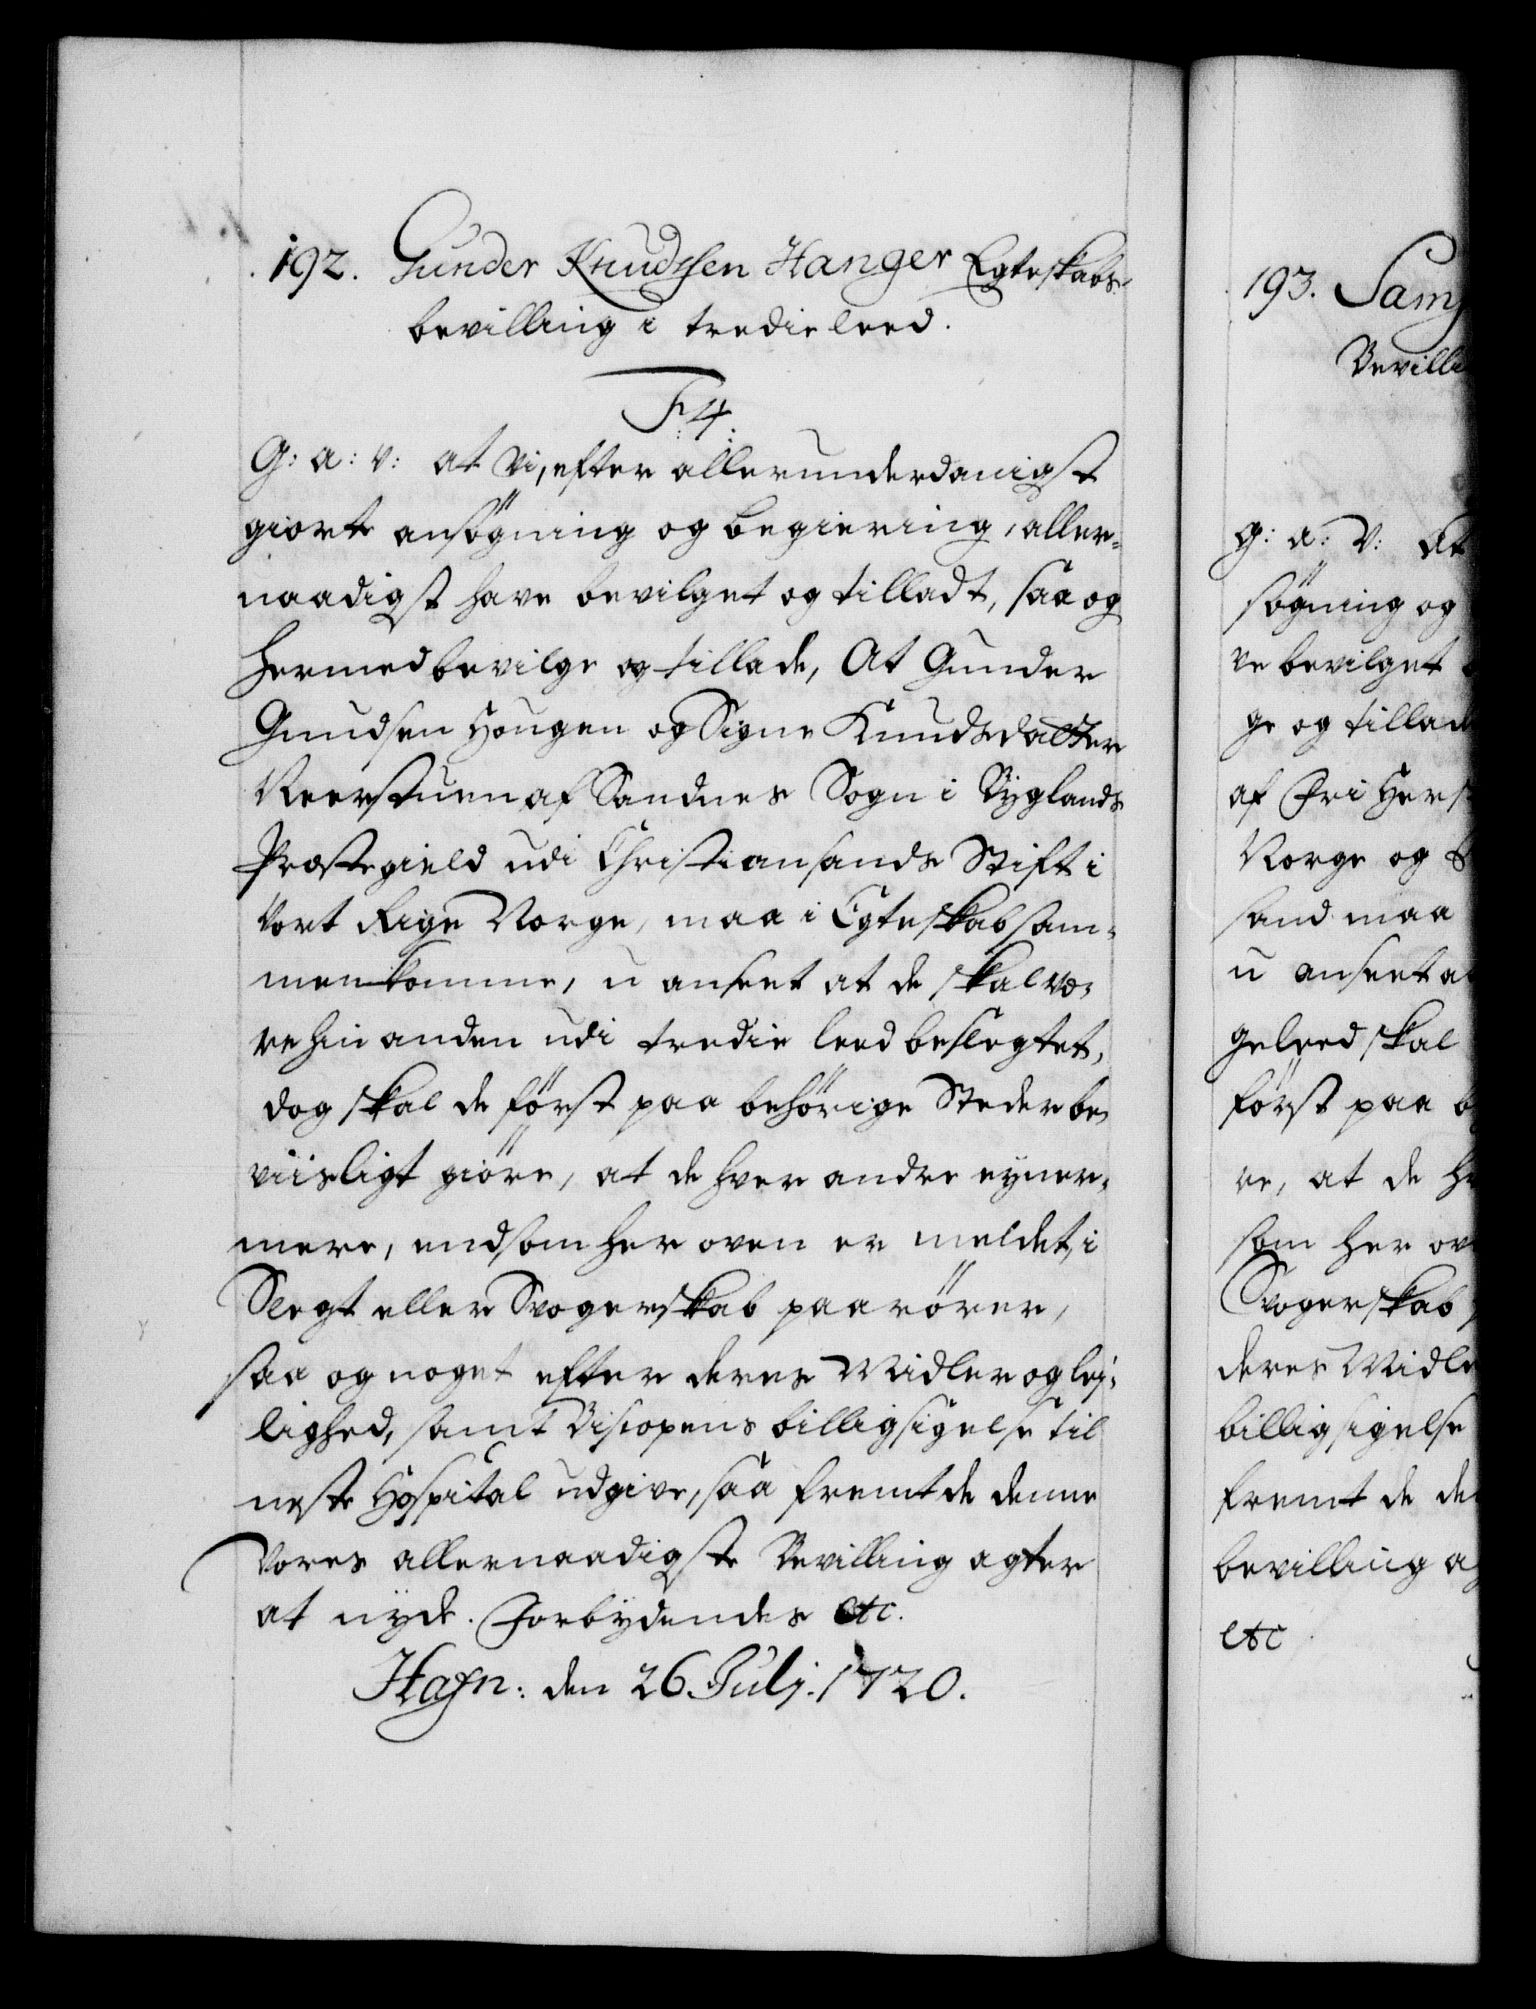 192. Gunder Knudsen Hanger Egteskabs
bevilling i tredie leed.
F. 4.
G: a: v: at Vi, efter allerunderdanigst
giorte ansøgning og begiering, aller-
naadigst have bevilget og tilladt, saa og
hermed bevilge og tillade, At Gunder
Gunudsen Hougen og Signe Knudsdatter
Neerstuen af Sandnes Sogn i Byglands
Præstegield udi Christiansands Stift i
Vort Rige Norge, maa i Egteskab sam-
menkomme, u anseet at de skal væ-
re hin anden udi tredie leed beslegtet,
dog skal de først paa behørige Steder be-
viisligt giøre, at de hver andre ey ner-
mere, end som her oven er meldet, i
Slegt eller Svogerskab paarører,
saa og noget efter deres Midler og lej-
lighed, samt Biscopens billigsigelse til
neste Hospital udgive, saa fremt de denne
Vores allernaadigste Bevilling agter
at nyde. Forbydendes etc.
Hafn: den 26 Julj. 1720.
193. Sam
Bevilli
G: a: V: At
søgning og
ve bevilget
ge og tillade
af Fri Hers
Norge og
sand maa
u anseet at
geleed skal
først paa b
re, at de h
som her ov
Svogerskab
deres Midle
billigsigelse
fremt de de
bevilling a
etc